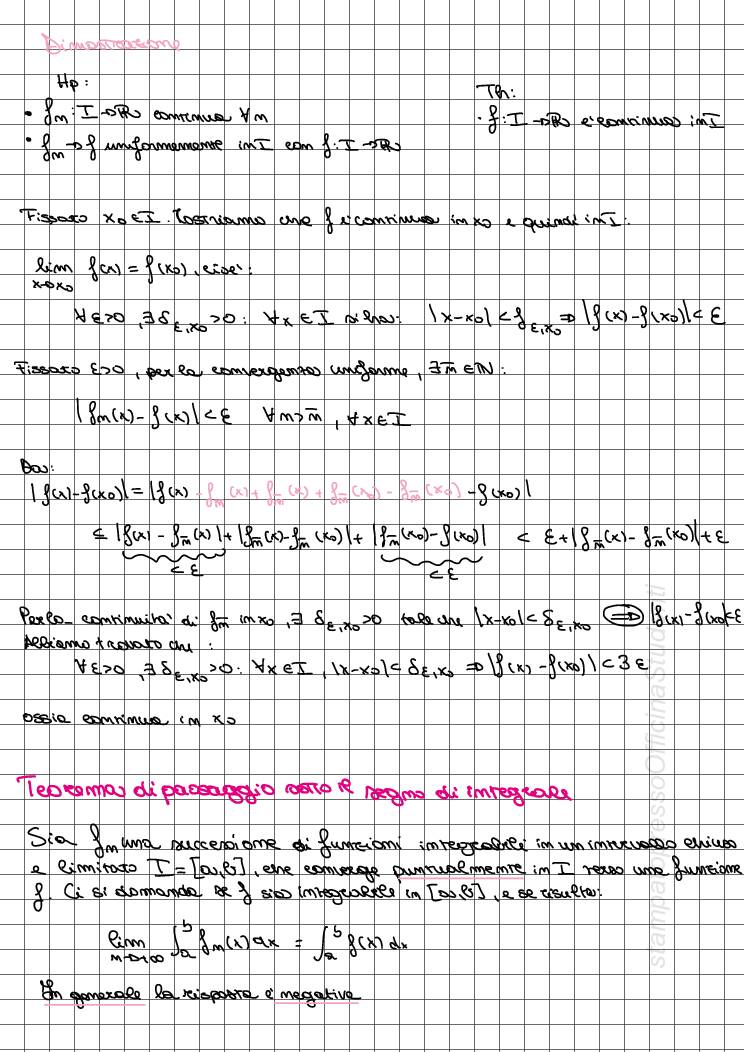 Dimostrazione
Hp:
Th:
• fn: I→ℝ continua ∀n
• f: I→ℝ è continua in I
• fn→f uniformemente in I con f: I→ℝ
Fissato x₀∈I. Mostriamo che f è continua in x₀ e quindi in I:
lim f(x) = f(x₀), cioè:
x→x₀
∀ε>0, ∃δ_ε,x₀>0: ∀x∈I si ha: |x-x₀|<δ_ε,x₀ ⇒ |f(x)-f(x₀)|<ε
Fissato ε>0, per la convergenza uniforme, ∃n̅∈ℕ:
|fn(x)-f(x)|<ε ∀n>n̅, ∀x∈I
Ora:
|f(x)-f(x₀)|=|f(x) -fn̅(x)+fn̅(x)+fn̅(x₀)-fn̅(x₀) -f(x₀)|
≤ |f(x)-fn̅(x)|+|fn̅(x)-fn̅(x₀)|+|fn̅(x₀)-f(x₀)| < ε+|fn̅(x)-fn̅(x₀)|+ε
<ε <ε
Per la continuità di fn̅ in x₀, ∃ δ_ε,x₀>0 tale che |x-x₀|<δ_ε,x₀ ⇒ |f(x)-f(x₀)|<ε
Abbiamo trovato che:
∀ε>0, ∃δ_ε,x₀>0: ∀x∈I, |x-x₀|<δ_ε,x₀ ⇒ |f(x)-f(x₀)|<3ε
ossia continua in x₀
Teorema di passaggio sotto il segno di integrale
Sia fn una successione di funzioni integrabili in un intervallo chiuso
e limitato I=[a,b], che converge puntualmente in I verso una funzione
f. Ci si domanda se f sia integrabile in [a,b], e se risulta:
lim ∫ₐᵇ fn(x)dx = ∫ₐᵇ f(x)dx
n→+∞
In generale la risposta è negativa
stampato presso OfficinaStudenti